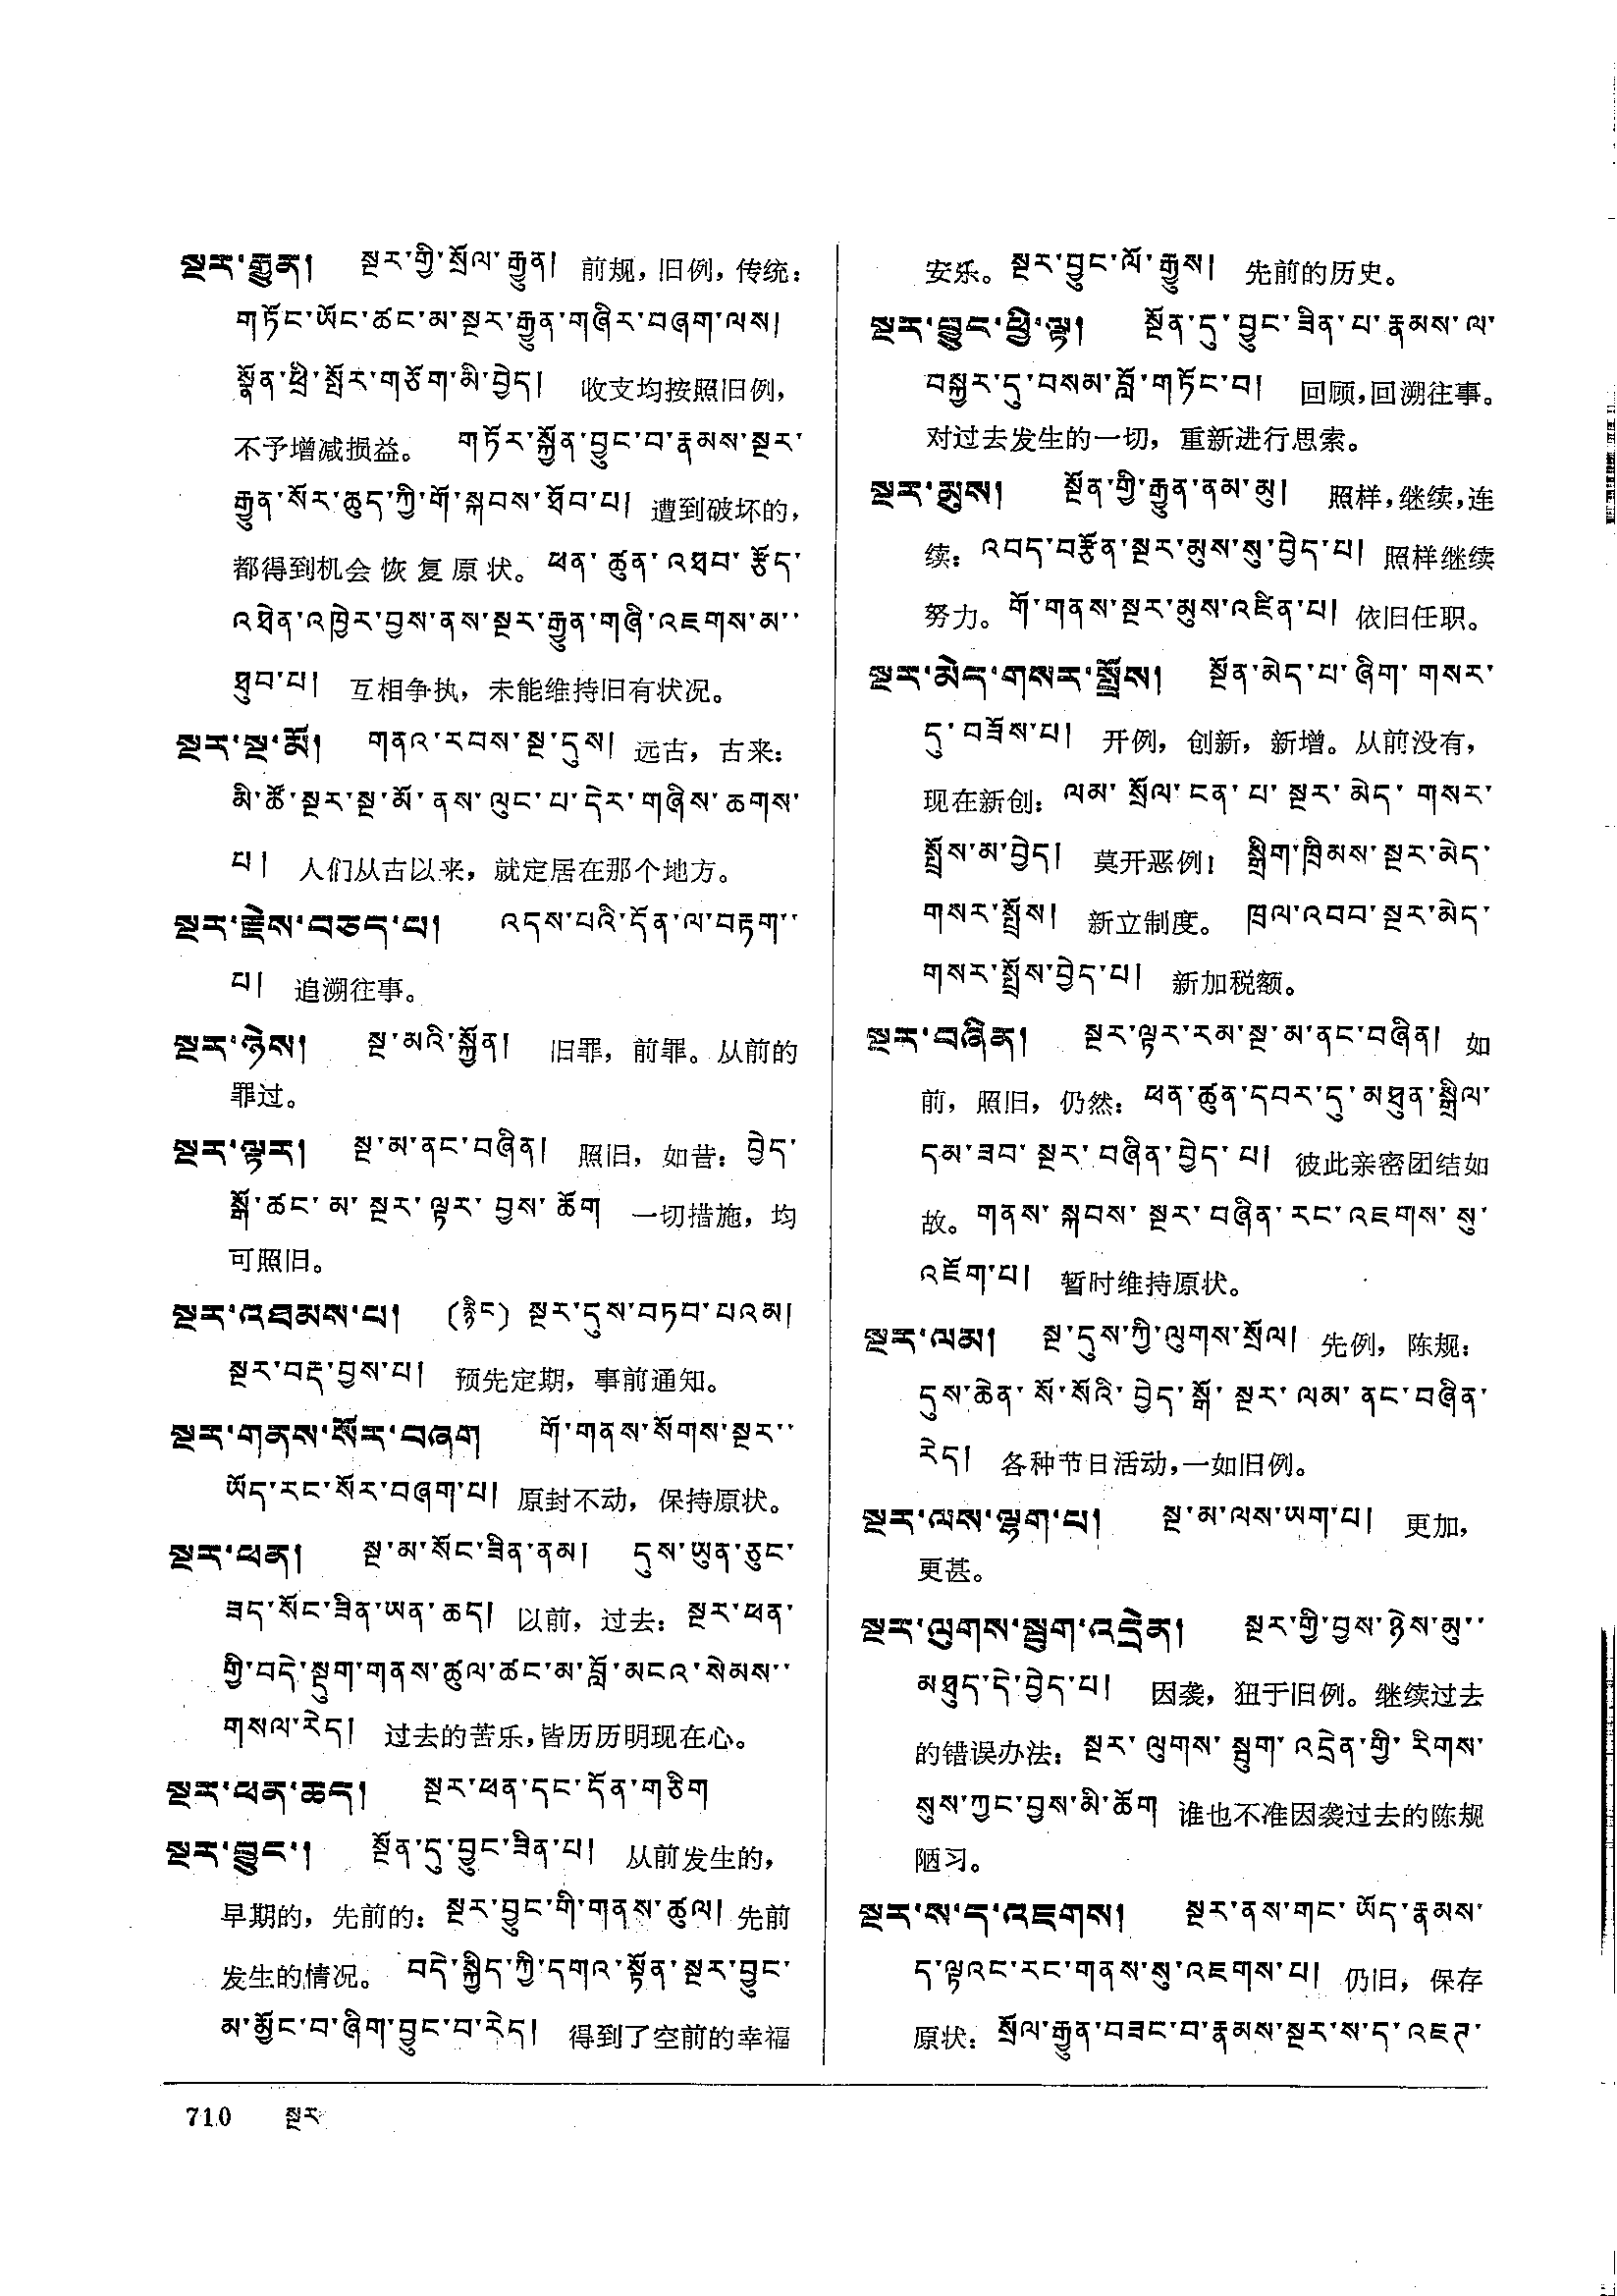 སྔར་རྒྱུན། སྔར་གྱི་སྲོལ་རྒྱུན། 前规，旧例，传统：
གཏོང་ཡོང་ཚང་མ་སྔར་རྒྱུན་གཞིར་བཞག་ལས།
སྣོན་ཕྲི་སྤོར་གཅོག་མི་བྱེད། 收支均按照旧例，
不予增减损益。 གཏོར་སྐྱོན་བྱུང་བ་རྣམས་སྔར་
རྒྱུན་སོར་ཆུད་ཀྱི་གོ་སྐབས་ཐོབ་པ། 遭到破坏的，
都得到机会恢复原状。 ཕན་ཚུན་འཐབ་རྩོད་
འཐེན་འཁྱེར་བྱས་ནས་སྔར་རྒྱུན་གཞི་འཇགས་མ་
ཐུབ་པ། 互相争执，未能维持旧有状况。
སྔར་སྔ་མོ། གནའ་རབས་སྔ་དུས། 远古，古来：
མི་ཚོ་སྔར་སྔ་མོ་ནས་ལུང་པ་དེར་གཞིས་ཆགས་
པ། 人们从古以来，就定居在那个地方。
སྔར་རྗེས་བཅད་པ། འདས་པའི་དོན་ལ་བརྟག་
པ། 追溯往事。
སྔར་ཉེས། སྔ་མའི་སྐྱོན། 旧罪，前罪。从前的
罪过。
སྔར་ལྟར། སྔ་མ་ནང་བཞིན། 照旧，如昔： བྱེད་
སྒོ་ཚང་མ་སྔར་ལྟར་བྱས་ཆོག 一切措施，均
可照旧。
སྔར་འཐམས་པ། (རྙིང) སྔར་དུས་བཏབ་པའམ།
སྔར་བརྡ་བྱས་པ། 预先定期，事前通知。
སྔར་གནས་སོར་བཞག གོ་གནས་སོགས་སྔར་
ཡོད་རང་སོར་བཞག་པ། 原封不动，保持原状。
སྔར་ཕན། སྔ་མ་སོང་ཟིན་ནམ། དུས་ཡུན་ཅུང་
ཟད་སོང་ཟིན་ཡན་ཆད། 以前，过去： སྔར་ཕན་
གྱི་བདེ་སྡུག་གནས་ཚུལ་ཚང་མ་བློ་མངའ་སེམས་
གསལ་རེད། 过去的苦乐，皆历历明现在心。
སྔར་ཕན་ཆད། སྔར་ཕན་དང་དོན་གཅིག
སྔར་བྱུང་། སྔོན་དུ་བྱུང་ཟིན་པ། 从前发生的，
早期的，先前的： སྔར་བྱུང་གི་གནས་ཚུལ། 先前
发生的情况。 བདེ་སྐྱིད་ཀྱི་དགའ་སྟོན་སྔར་བྱུང་
མ་མྱོང་བ་ཞིག་བྱུང་བ་རེད། 得到了空前的幸福
安乐。 སྔར་བྱུང་ལོ་རྒྱུས། 先前的历史。
སྔར་བྱུང་ཕྱི་ལྟ། སྔོན་དུ་བྱུང་ཟིན་པ་རྣམས་ལ་
བསྐྱར་དུ་བསམ་བློ་གཏོང་བ། 回顾，回溯往事。
对过去发生的一切，重新进行思索。
སྔར་མུས། སྔོན་གྱི་རྒྱུན་ནམ་མུ། 照样，继续，连
续： འབད་བརྩོན་སྔར་མུས་སུ་བྱེད་པ། 照样继续
努力。 གོ་གནས་སྔར་མུས་འཛིན་པ། 依旧任职。
སྔར་མེད་གསར་སྤྲོས། སྔོན་མེད་པ་ཞིག་གསར་
དུ་བཟོས་པ། 开例，创新，新增。从前没有，
现在新创： ལམ་སྲོལ་ངན་པ་སྔར་མེད་གསར་
སྤྲོས་མ་བྱེད། 莫开恶例！ སྒྲིག་ཁྲིམས་སྔར་མེད་
གསར་སྤྲོས། 新立制度。 ཁྲལ་འབབ་སྔར་མེད་
གསར་སྤྲོས་བྱེད་པ། 新加税额。
སྔར་བཞིན། སྔར་ལྟར་རམ་སྔ་མ་ནང་བཞིན། 如
前，照旧，仍然： ཕན་ཚུན་དབར་དུ་མཐུན་སྒྲིལ་
དམ་ཟབ་སྔར་བཞིན་བྱེད་པ། 彼此亲密团结如
故。 གནས་སྐབས་སྔར་བཞིན་རང་འཇགས་སུ་
འཇོག་པ། 暂时维持原状。
སྔར་ལམ། སྔ་དུས་ཀྱི་ལུགས་སྲོལ། 先例，陈规：
དུས་ཆེན་སོ་སོའི་བྱེད་སྒོ་སྔར་ལམ་ནང་བཞིན་
རེད། 各种节日活动，一如旧例。
སྔར་ལས་ལྷག་པ། སྔ་མ་ལས་ཡག་པ། 更加，
更甚。
སྔར་ལུགས་སྦྲུག་འདྲེན། སྔར་གྱི་བྱས་ཉེས་མུ་
མཐུད་དེ་བྱེད་པ། 因袭，狃于旧例。继续过去
的错误办法： སྔར་ལུགས་སྦྲུག་འདྲེན་གྱི་རིགས་
སུས་ཀྱང་བྱས་མི་ཆོག 谁也不准因袭过去的陈规
陋习。
སྔར་ས་ད་འཇགས། སྔར་ནས་གང་ཡོད་རྣམས་
ད་ལྟའང་རང་གནས་སུ་འཇགས་པ། 仍旧，保存
原状： སྲོལ་རྒྱུན་བཟང་བ་རྣམས་སྔར་ས་ད་འཇཊ་
710 སྔར